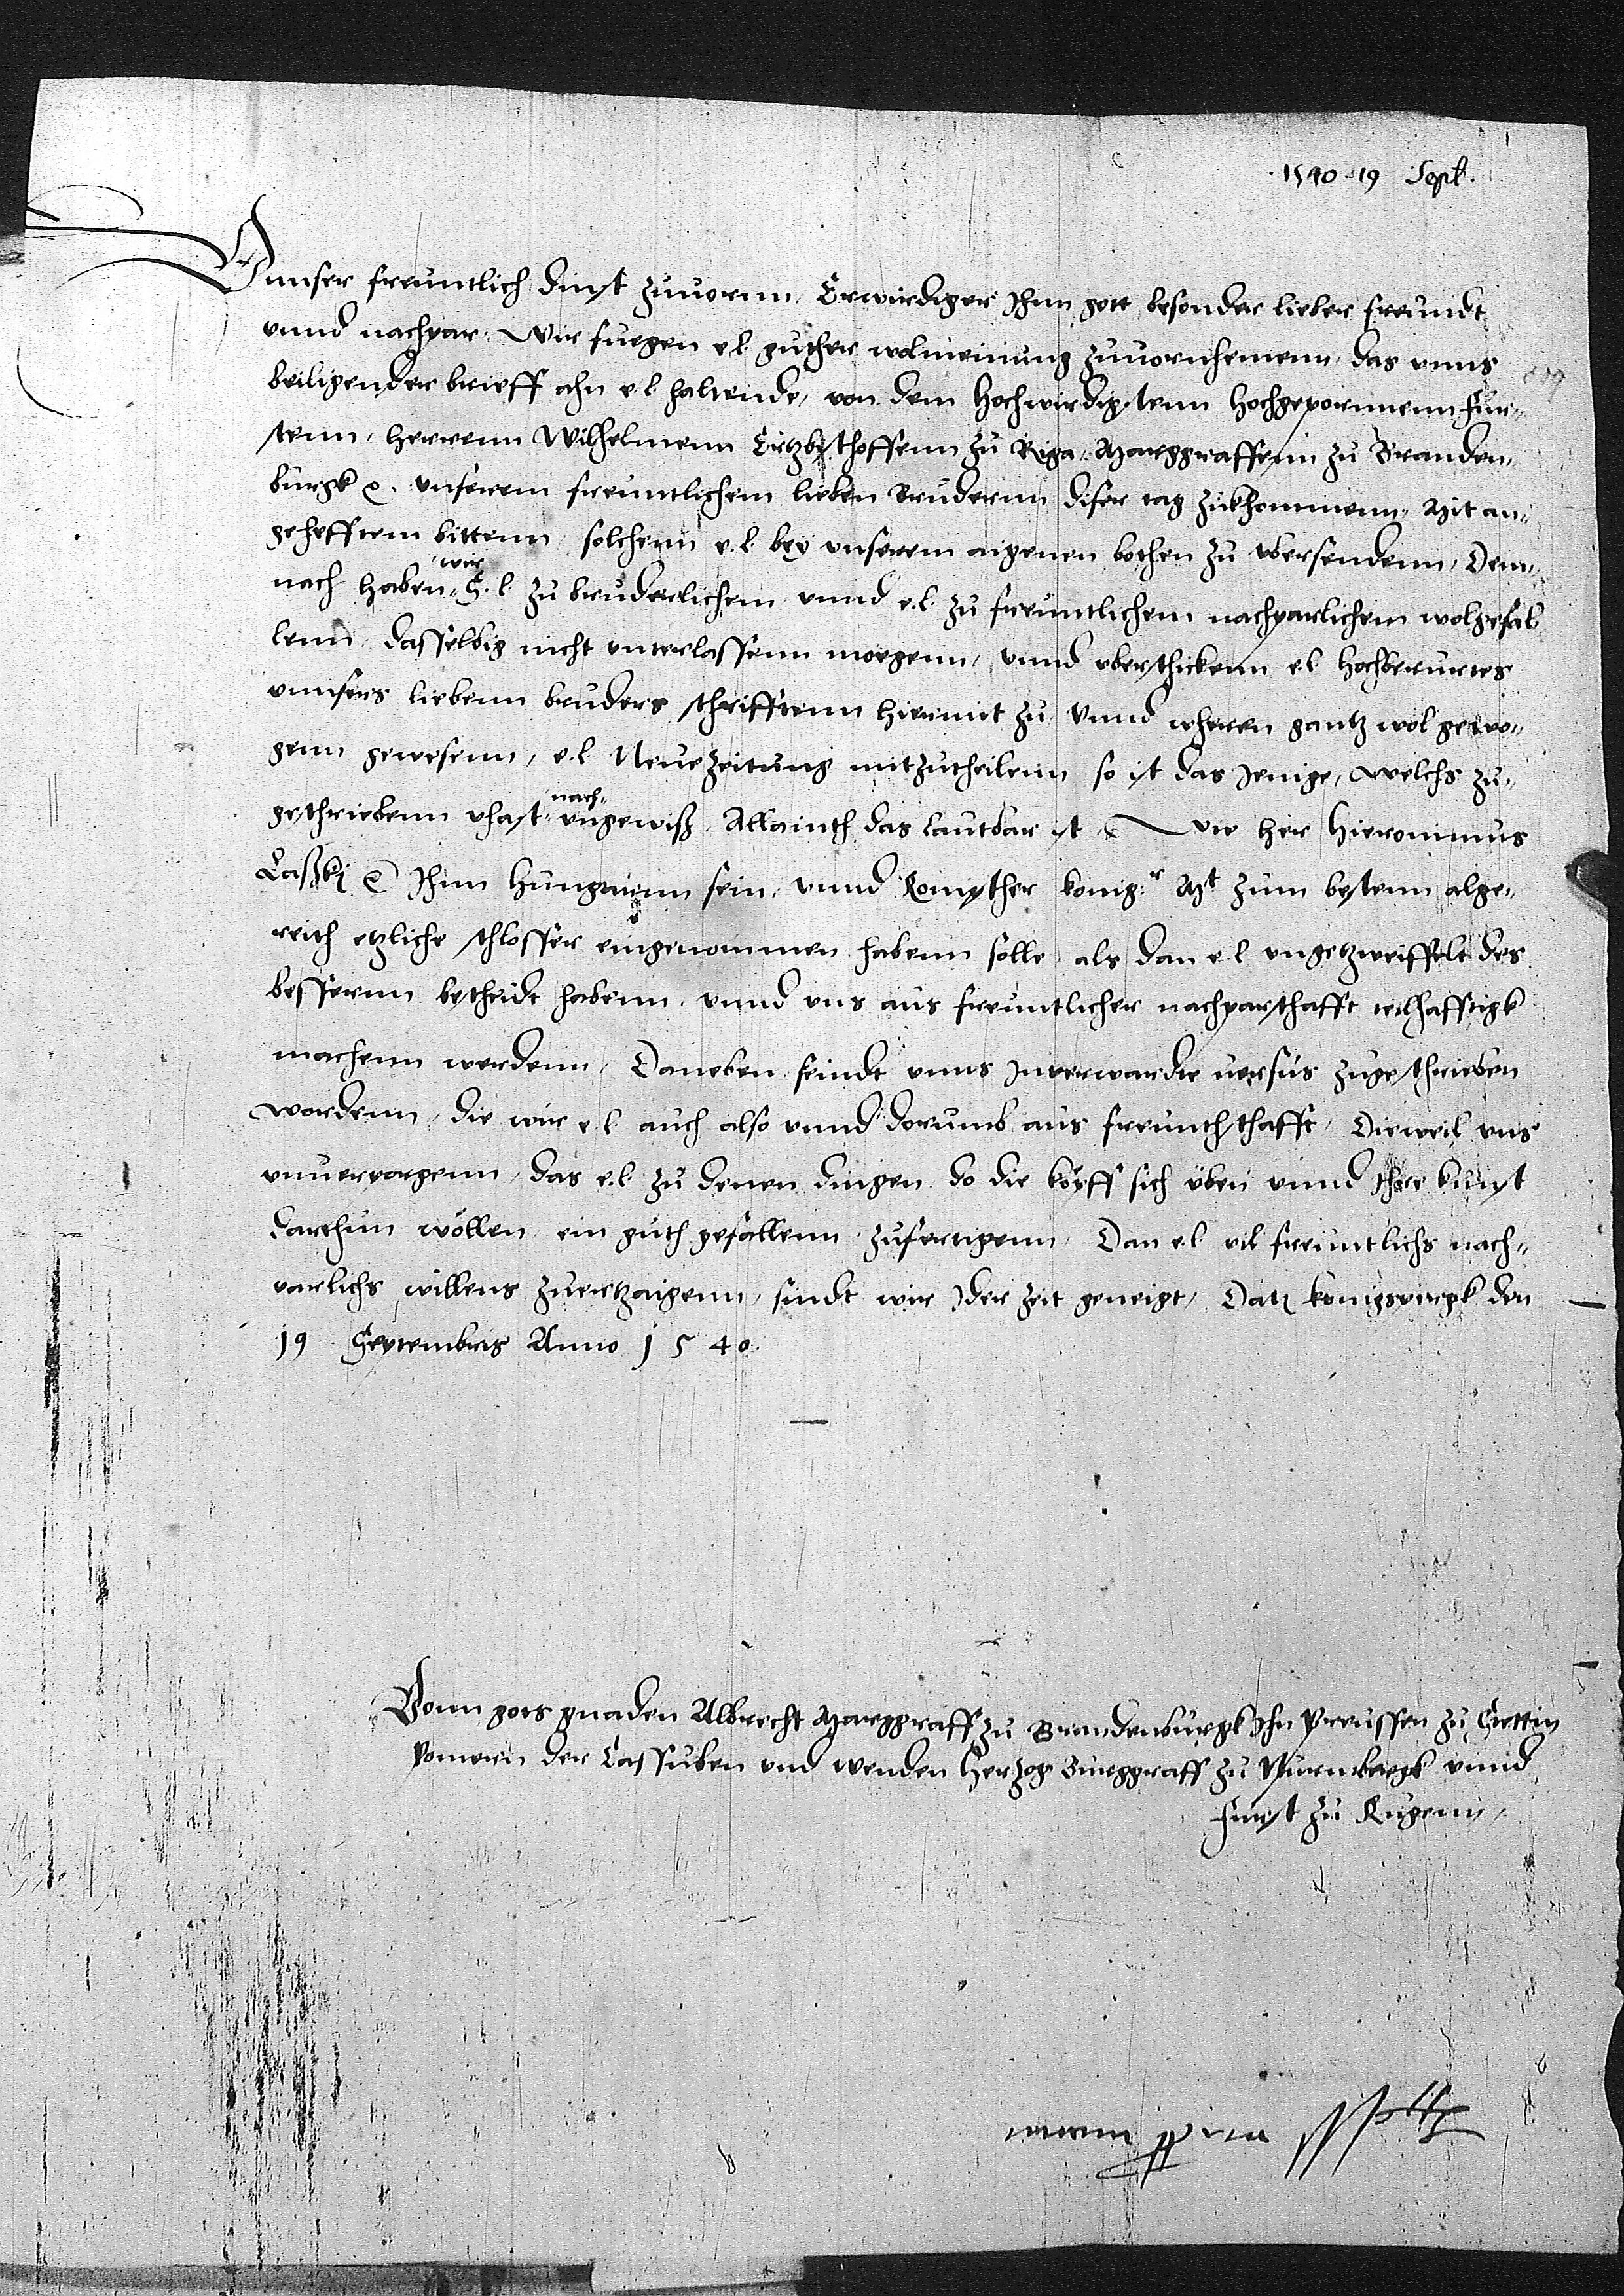 1540 19 Sept.
Vnnser freuntlich dinst zuuornn, Erwirdiger Ihnn gott besonder lieber freundt
vnnd nachpar, Wir fuegen e.l. guther wolmeinung zuuornhemenn, das vnns
beiligender brieff ahn e.l. haltende, von dem Hochwirdigstenn Hochgepornnenn Fur-
stenn, Herrenn Wilhelmenn Ertzbischoffenn zu Riga, Marggraffenn zu Branden-
burgk ec. vnserem freuntlichem lieben Brudernn diser tag zukhommenn, Mit an-
gehefftem bittenn, solchenn e.l. bey vnserem aigenen bothen zu vbersendenn, Dem-
nach haben wir S.l. zu bruderlichem vnnd e.l. zu freuntlichem nachparlichem wolgefal-
lenn, dasselbig nicht vnterlassenn moegenn, vnnd vberschickenn e.l. Hochberurtes
vnnsers liebenn bruders schrifftenn hiermit zu Vnnd wheren gantz wol gewo-
genn gewesenn, e.l. Neue Zeitung mitzutheilenn, so ist das Jenige, welchs zu-
geschriebenn vhast nach vngewiß, Allainch das lautbar ist, wie her Hieronimus
Laßkj ec. Ihnn Hungernn sein, vnnd Romischer konig:r Mt zum bestenn alge-
reith etzliche schlosser eingenommen habenn solle, als dan e.l. vngetzweiffelt des
bessernn bescheidt habenn, vnnd vns aus freuntlicher nachparschafft teilhafftigk
machenn werdenn, Daneben seindt vnns Inverwardte uersus zugeschrieben
wordenn, die wir e.l. auch also vnnd dorumb aus freunthschafft, Dieweil vns
vnuerporgenn, das e.l. zu denen dingen do die köpff sich üben vnnd Ihre kunst
darthun wöllen, ein guth gefallenn, zufertigenn, Dan e.l. vil freuntlichs nach-
parlichs willens zuertzaigenn, sindt wir Ider zeit geneigt, Datj konigspergk den
19 Septembris Anno 1540
Vonn gots gnaden Albrecht Marggraff zu Brandenburgk Ihn Preussen zu Stettin
Pomern der Cassuben vnd Wenden Hertzog Burggraff zu Nurmbergk vnnd
Furst zu Rugenn,
manu ppria sspt